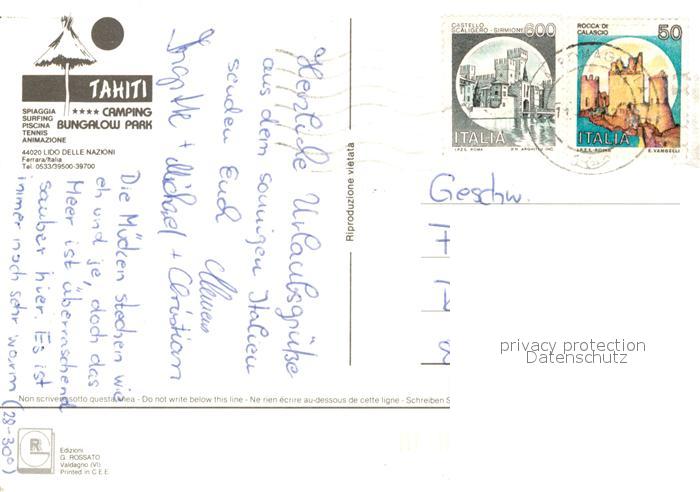 TAHITI
**** CAMPING
BUNGALOW PARK
SPIAGGIA
SURFING
PISCINA
TENNIS
ANIMAZIONE
44020 LIDO DELLE NAZIONI
Ferrara/Italia
Tel. 0533/39500-39700
Herzliche Urlaubsgrüße
aus dem sonnigen Italien
senden Euch
Clemens
Ingitte + Michael + Christian
Die Mücken stechen wie
eh und je, doch das
Meer ist überraschend
sauber hier. Es ist
immer noch sehr warm (28-30°)
Riproduzione vietata
CASTELLO
SCALIGERO - SIRMIONE
600
ITALIA
I.P.Z.S. ROMA
ROCCA DI
CALASCIO
50
ITALIA
I.P.Z.S. ROMA
E. VANGELLI
Geschw.
H
privacy protection
Datenschutz
Non scrivere sotto questa linea - Do not write below this line - Ne rien écrire au-dessous de cette ligne - Schreiben S
R
G
Edizioni
G. ROSSATO
Valdagno (VI)
Printed in C.E.E.